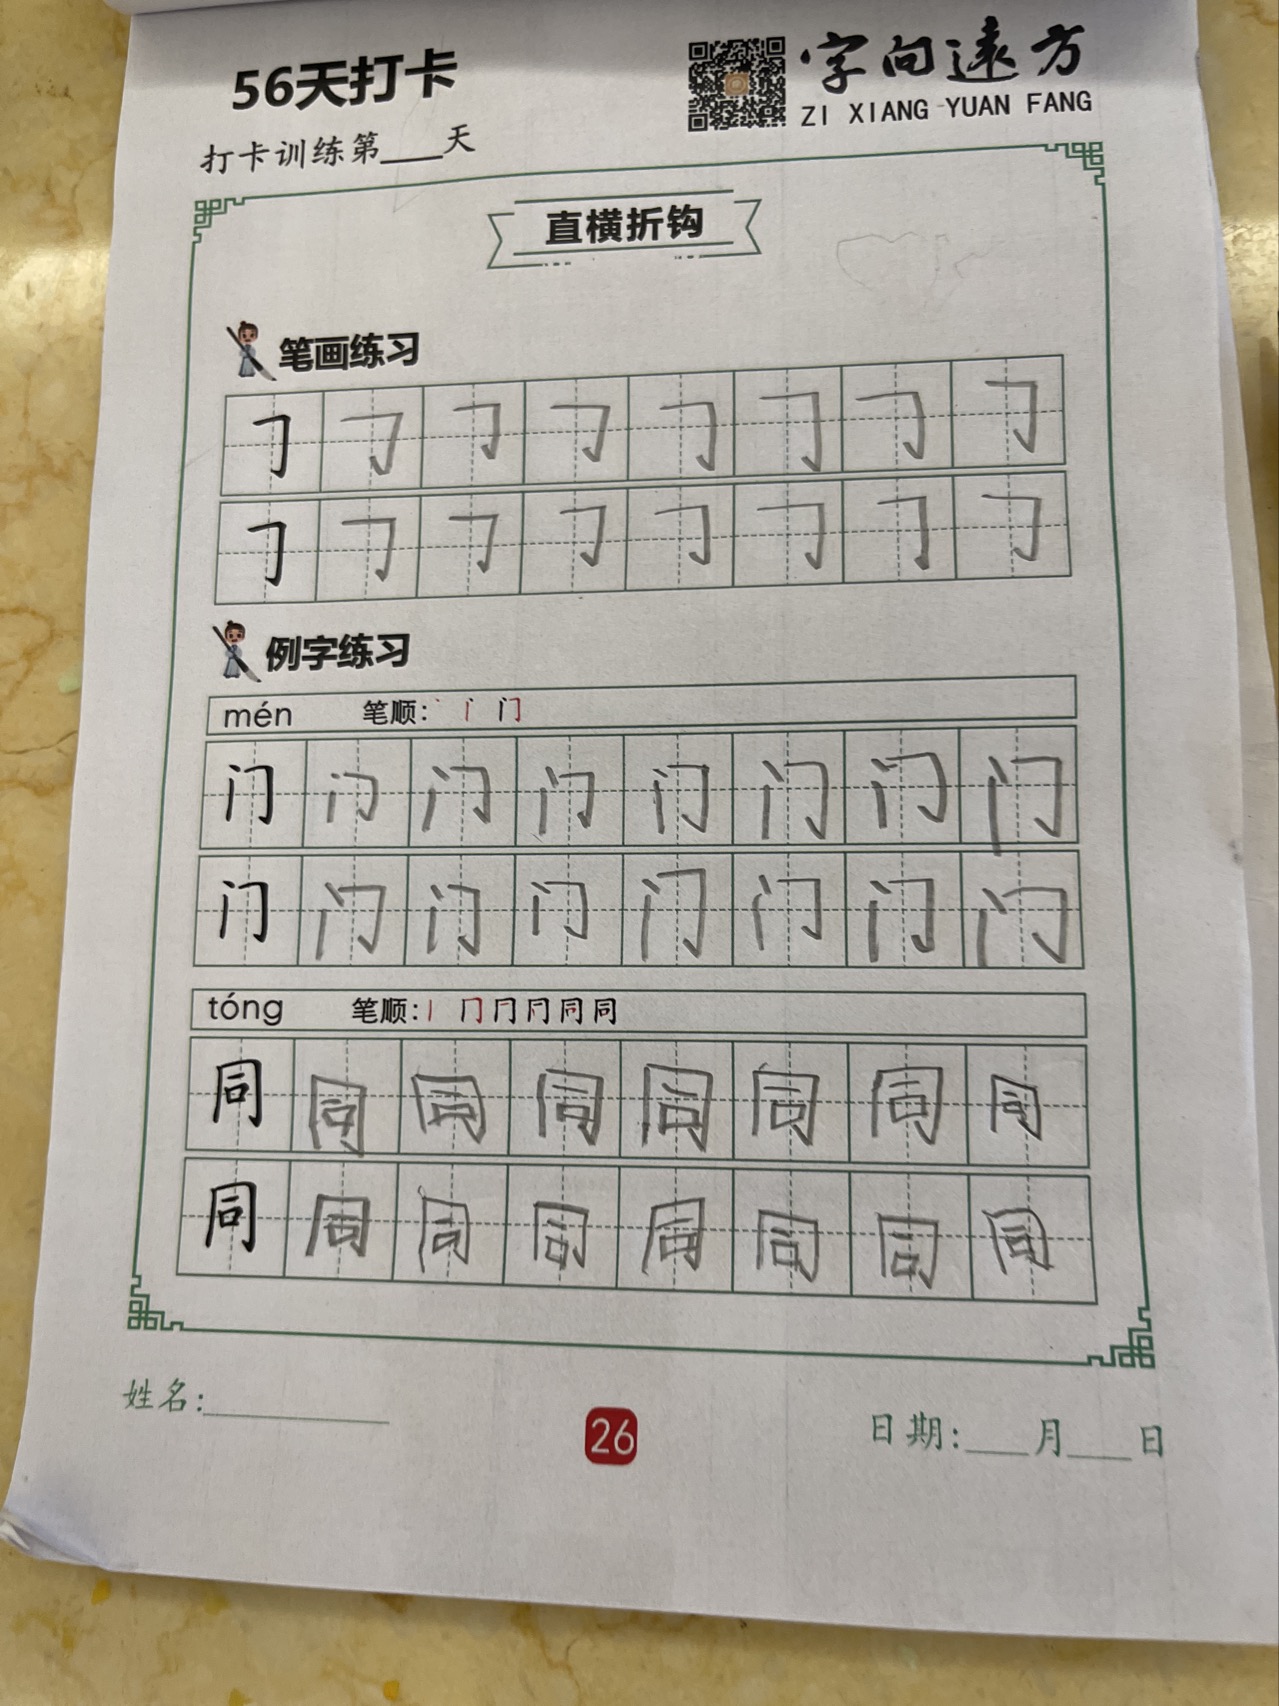 56天打卡
字向远方
ZI XIANG YUAN FANG
打卡训练第____天
直横折钩
笔画练习
㇆ ㇆ ㇆ ㇆ ㇆ ㇆ ㇆ ㇆
㇆ ㇆ ㇆ ㇆ ㇆ ㇆ ㇆ ㇆
例字练习
mén 笔顺: 丶 门
门 门 门 门 门 门 门 门
门 门 门 门 门 门 门 门
tóng 笔顺: 丨 冂 同 同
同 同 同 同 同 同 同 同
同 同 同 同 同 同 同 同
姓名:__________
26
日期:____月____日